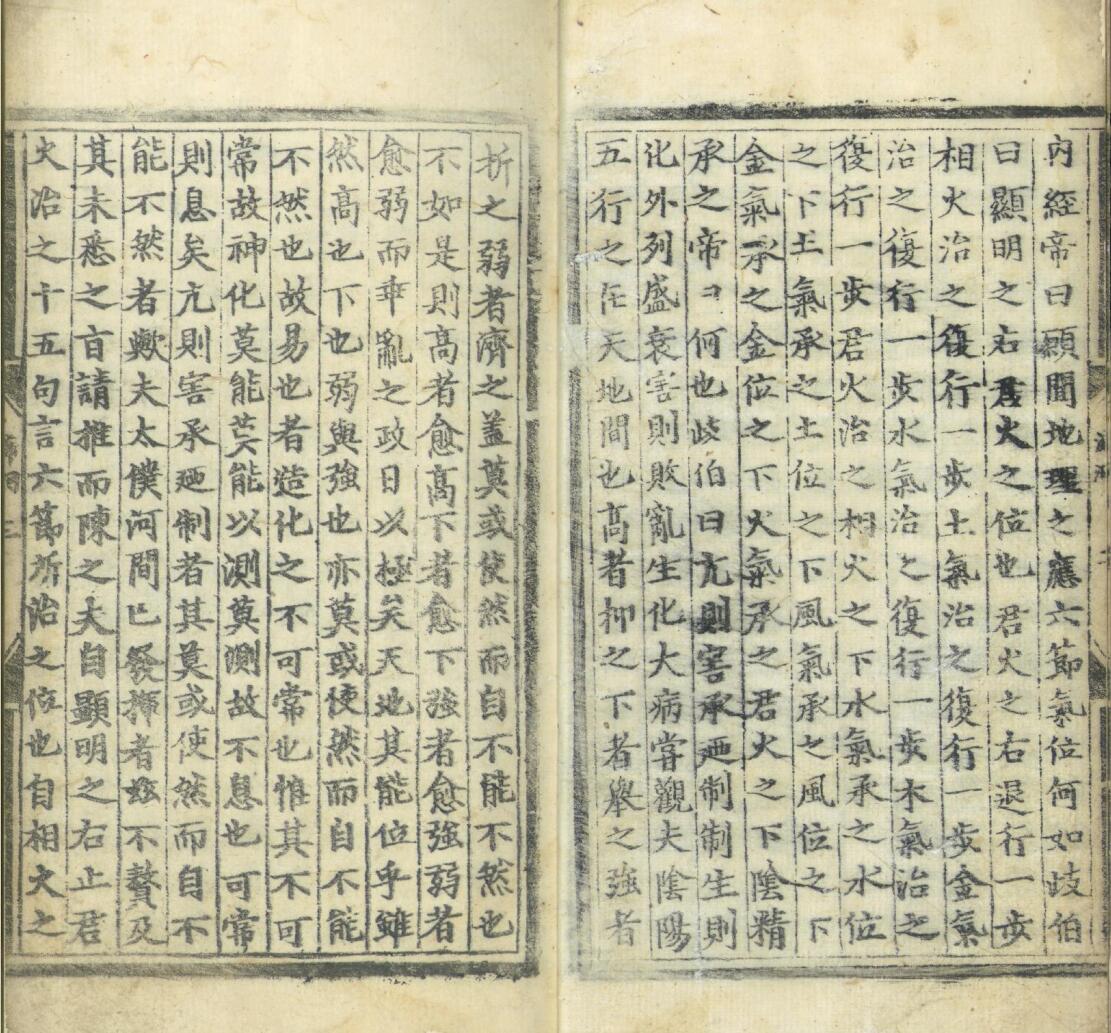 內經帝曰願聞地理之應六節氣位何如歧伯
曰顯明之右君火之位也君火之右退行一步
相火治之復行一步土氣治之復行一步金氣
治之復行一步水氣治之復行一步木氣治之
復行一步君火治之相火之下水氣承之水位
之下土氣承之土位之下風氣承之風位之下
金氣承之金位之下火氣承之君火之下陰精
承之帝曰何也歧伯曰亢則害承廼制制生則
化外列盛衰害則敗亂生化大病嘗觀夫陰陽
五行之在天地間也高者抑之下者舉之強者
析之弱者濟之盖莫或使然而自不能不然也
不如是則高者愈高下者愈下強者愈強弱者
愈弱而乖亂之政日以極矣天地其能位乎雖
然高也下也弱與強也亦莫或使然而自不能
不然也故易也者造化之不可常也惟其不可
常故神化莫能莫能以測莫測故不息也可常
則息矣亢則害承廼制者其莫或使然而自不
能不然者歟夫太僕河間已發揮者玆不贅及
其未悉之旨請推而陳之夫自顯明之右止君
火治之十五句言六節所治之位也自相火之